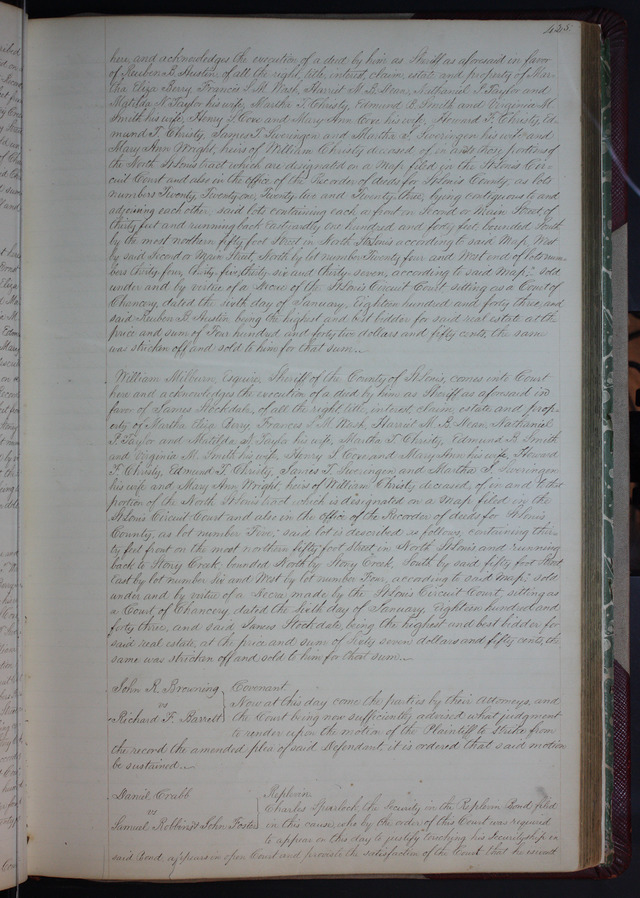 425
here, and acknowledges the execution of a deed by him as Sheriff as aforesaid in favor
of Reuben B. Austin, of all the right, title, interest, claim, estate and property of Mar-
tha Eliza Berry, Frances L. M. Wash, Harriet M. B. Dean, Nathaniel P. Taylor and
Matilda N. Taylor his wife, Martha T. Christy, Edmund B. Smith and Virginia M.
Smith his wife, Henry L. Cove and Mary Ann Cove his wife, Howard F. Christy, Ed-
mund T. Christy, James T. Sweringen and Martha S. Sweringen his wife and
Mary Ann Wright, heirs of William Christy deceased, of in and to those portions of
the North St Louis tract which are designated on a Map filed in the St Louis Cir-
cuit Court and also in the office of the Recorder of deeds for St Louis County, as lots
numbers Twenty, Twenty one, Twenty two and Twenty three, lying contiguous to and
adjoining each other, said lots containing each, a front on Second or Main Street of
thirty feet and running back eastwardly one hundred and forty feet, bounded South
by the most northern fifty foot Street in North St Louis according to said Map, West
by said Second or Main Street, North by lot number Twenty four and West end of lots num-
bers thirty four, thirty five, thirty six and thirty seven, according to said Map; sold
under and by virtue of a Decree of the St Louis Circuit Court setting as a Court of
Chancery, dated the sixth day of January, Eighteen hundred and forty three, and
said Reuben B. Austin, being the highest and best bidder for said real estate at the
price and sum of Four hundred and forty two dollars and fifty cents, the same
was stricken off and sold to him for that sum.
William Milburn, Esquire, Sheriff of the County of St Louis, comes into Court
here and acknowledges the execution of a deed by him as Sheriff as aforesaid in
favor of James Stockdale, of all the right, title, interest, claim, estate and prop-
erty of Martha Eliza Berry, Frances L. M. Wash, Harriet M. B. Dean, Nathaniel
P. Taylor and Matilda N. Taylor his wife, Martha T. Christy, Edmund B. Smith
and Virginia M. Smith his wife, Henry L. Cove and Mary Ann his wife, Howard
F. Christy, Edmund T. Christy, James T. Sweringen and Martha S. Sweringen
his wife and Mary Ann Wright, heirs of William Christy deceased, of in and to that
portion of the North St Louis tract which is designated on a Map filed in the
St Louis Circuit Court and also in the office of the Recorder of deeds for St Louis
County, as lot number Five; said lot is described as follows, containing thir-
ty feet front on the most northern fifty foot Street in North St Louis and running
back to Stony Creek, bounded North by Stony Creek, South by said fifty foot Street
East by lot number Six and West by lot number Four, according to said Map; sold
under and by virtue of a Decree made by the St Louis Circuit Court, setting as
a Court of Chancery, dated the sixth day of January, Eighteen hundred and
forty three, and said James Stockdale, being the highest and best bidder for
said real estate, at the price and sum of Sixty seven dollars and fifty cents, the
same was stricken off and sold to him for that sum.
John R. Browning
vs
Richard F. Barrett
Covenant
Now at this day come the parties by their attorneys, and
the Court being now sufficiently advised what judgment
to render upon the motion of the Plaintiff to Strike from
the record the amended plea of said Defendant, it is ordered that said motion
be sustained.
Daniel Crabb
vs
Samuel Robbins & John Foster
Replevin
Charles Spurlock, the Security in the Replevin Bond filed
in this cause, who by the order of this Court was required
to appear on this day to justify touching his Securityship in
said Bond, appears in open Court and proves to the satisfaction of the Court that he is worth